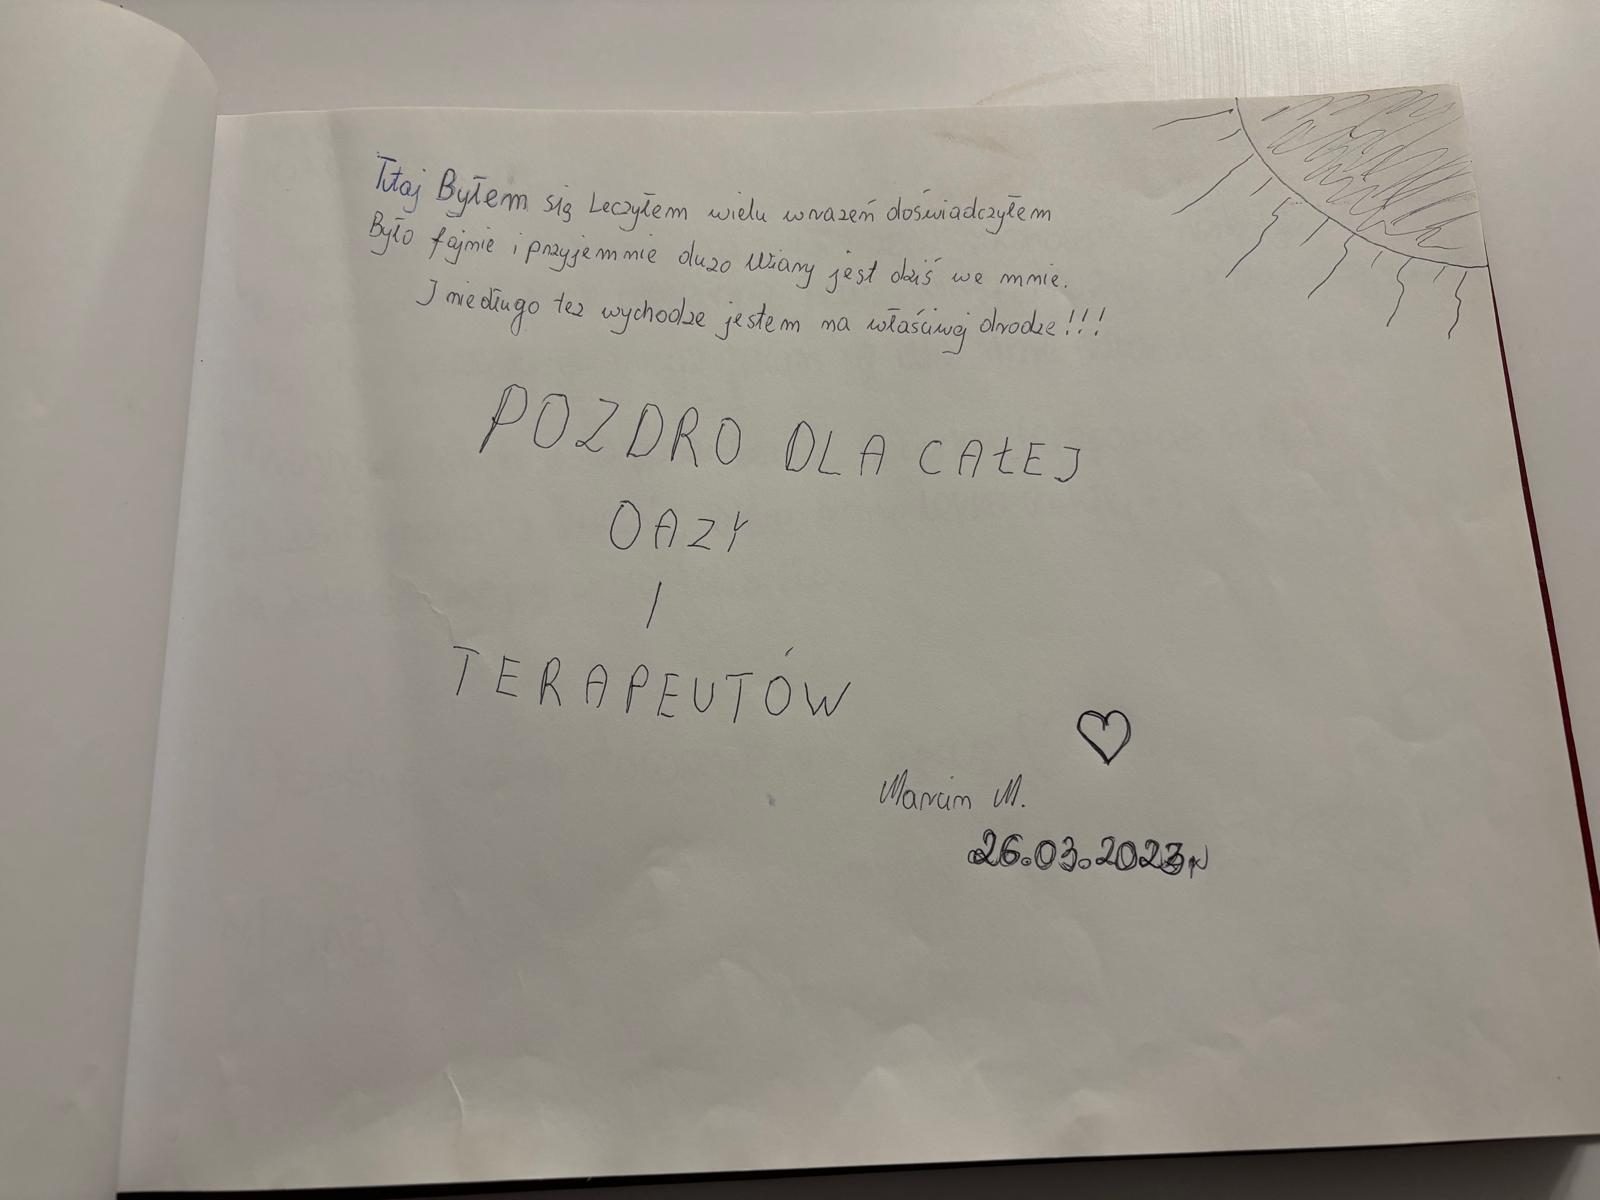 Tutaj Byłem się Leczyłem wielu wrażeń doświadczyłem
Było fajnie i przyjemnie dużo Wiary jest dziś we mnie.
I niedługo też wychodze jestem na właściwej drodze!!!
POZDRO DLA CAŁEJ
OAZY
I
TERAPEUTÓW
Marcin M.
26.03.2023r